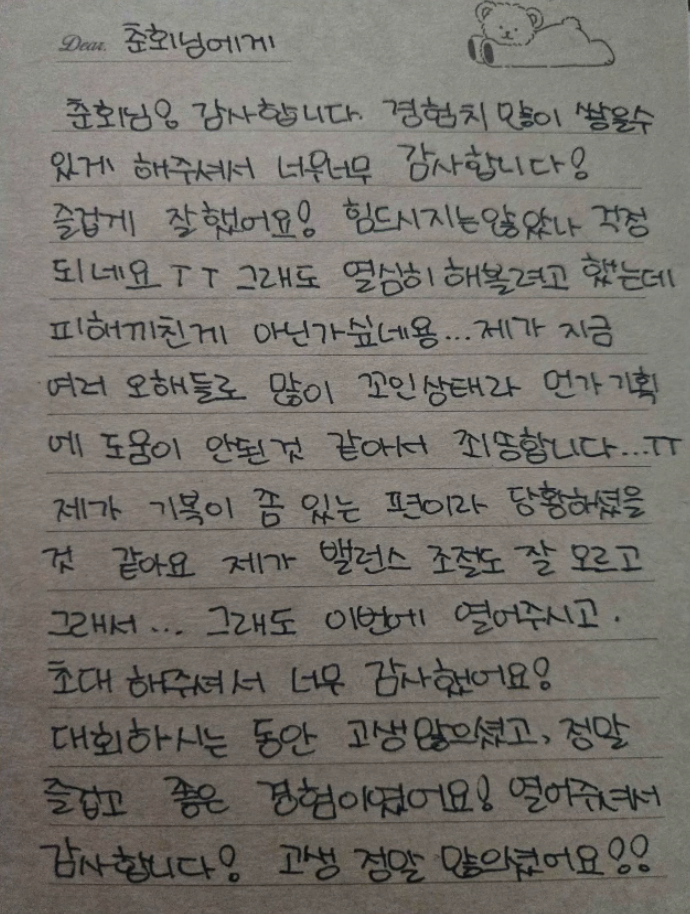 Dear. 준회님에게
준회님! 감사합니다. 경험치 많이 쌓을수
있게 해주셔서 너무너무 감사합니다!
즐겁게 잘했어요! 힘드시지는않았나 걱정
되네요 ㅜㅜ 그래도 열심히 해볼려고 했는데
피해끼친게 아닌가싶네용...제가 지금
여러 오해들로 많이 꼬인상태라 먼가 기획
에 도움이 안된것 같아서 죄송합니다...ㅠ
제가 기복이 쫌 있는 편이라 당황하셨을
것 같아요 제가 밸런스 조절도 잘 모르고
그래서... 그래도 이번에 열어주시고.
초대 해주셔서 너무 감사했어요!
대회하시는 동안 고생많으셨고, 정말
즐겁고 좋은 경험이였어요! 열어주셔서
감사합니다! 고생 정말 많의셨어요!!